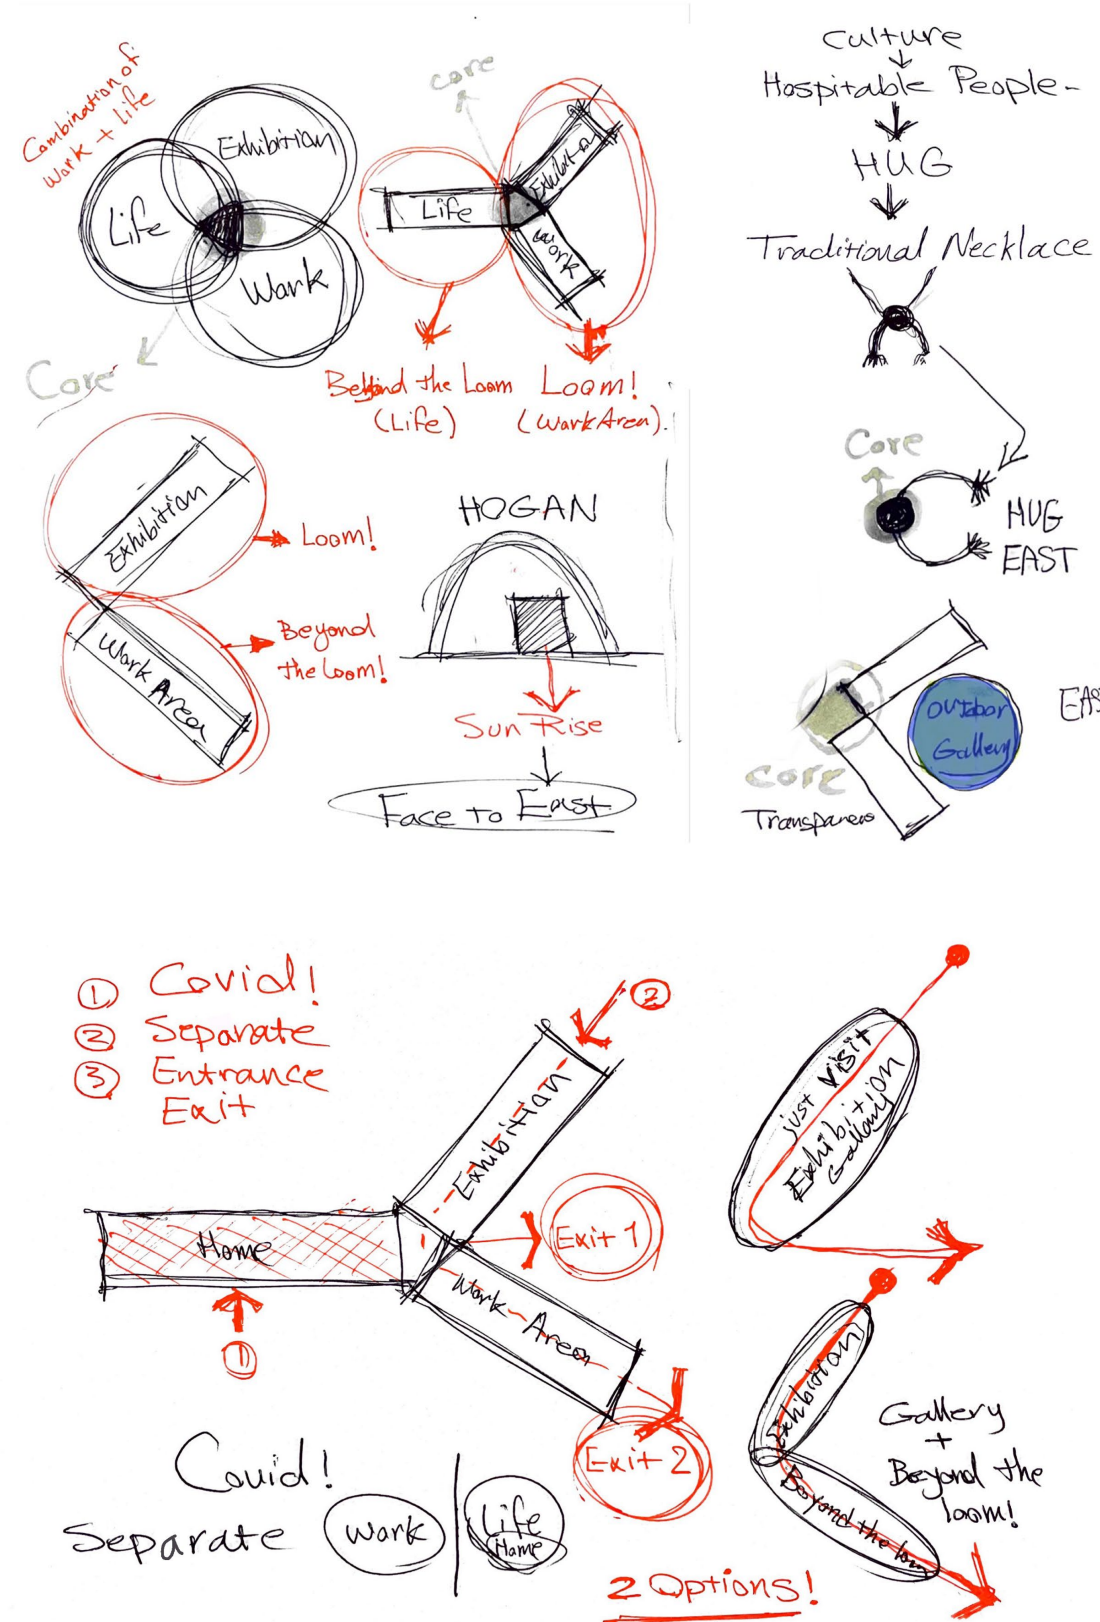 Combination of
Work + Life
Exhibition
Life
Work
Core
core
Life
Exhibition
Work
Behind the Loom
(Life)
Loom!
(Work Area).
Exhibition
Loom!
Work Area
Beyond
the loom!
HOGAN
Sun Rise
Face to East
Culture
Hospitable People-
HUG
Traditional Necklace
Core
HUG
EAST
Outdoor
Gallery
EAS
Core
① Covid!
② Separate
③ Entrance
Exit
②
Exhibition
Home
Exit 1
Work Area
①
Exit 2
Covid!
Separate
Work
Life
Home
just visit
Exhibition
Gallery
Exhibition
Beyond the loom
Gallery
+
Beyond the
loom!
2 Options!